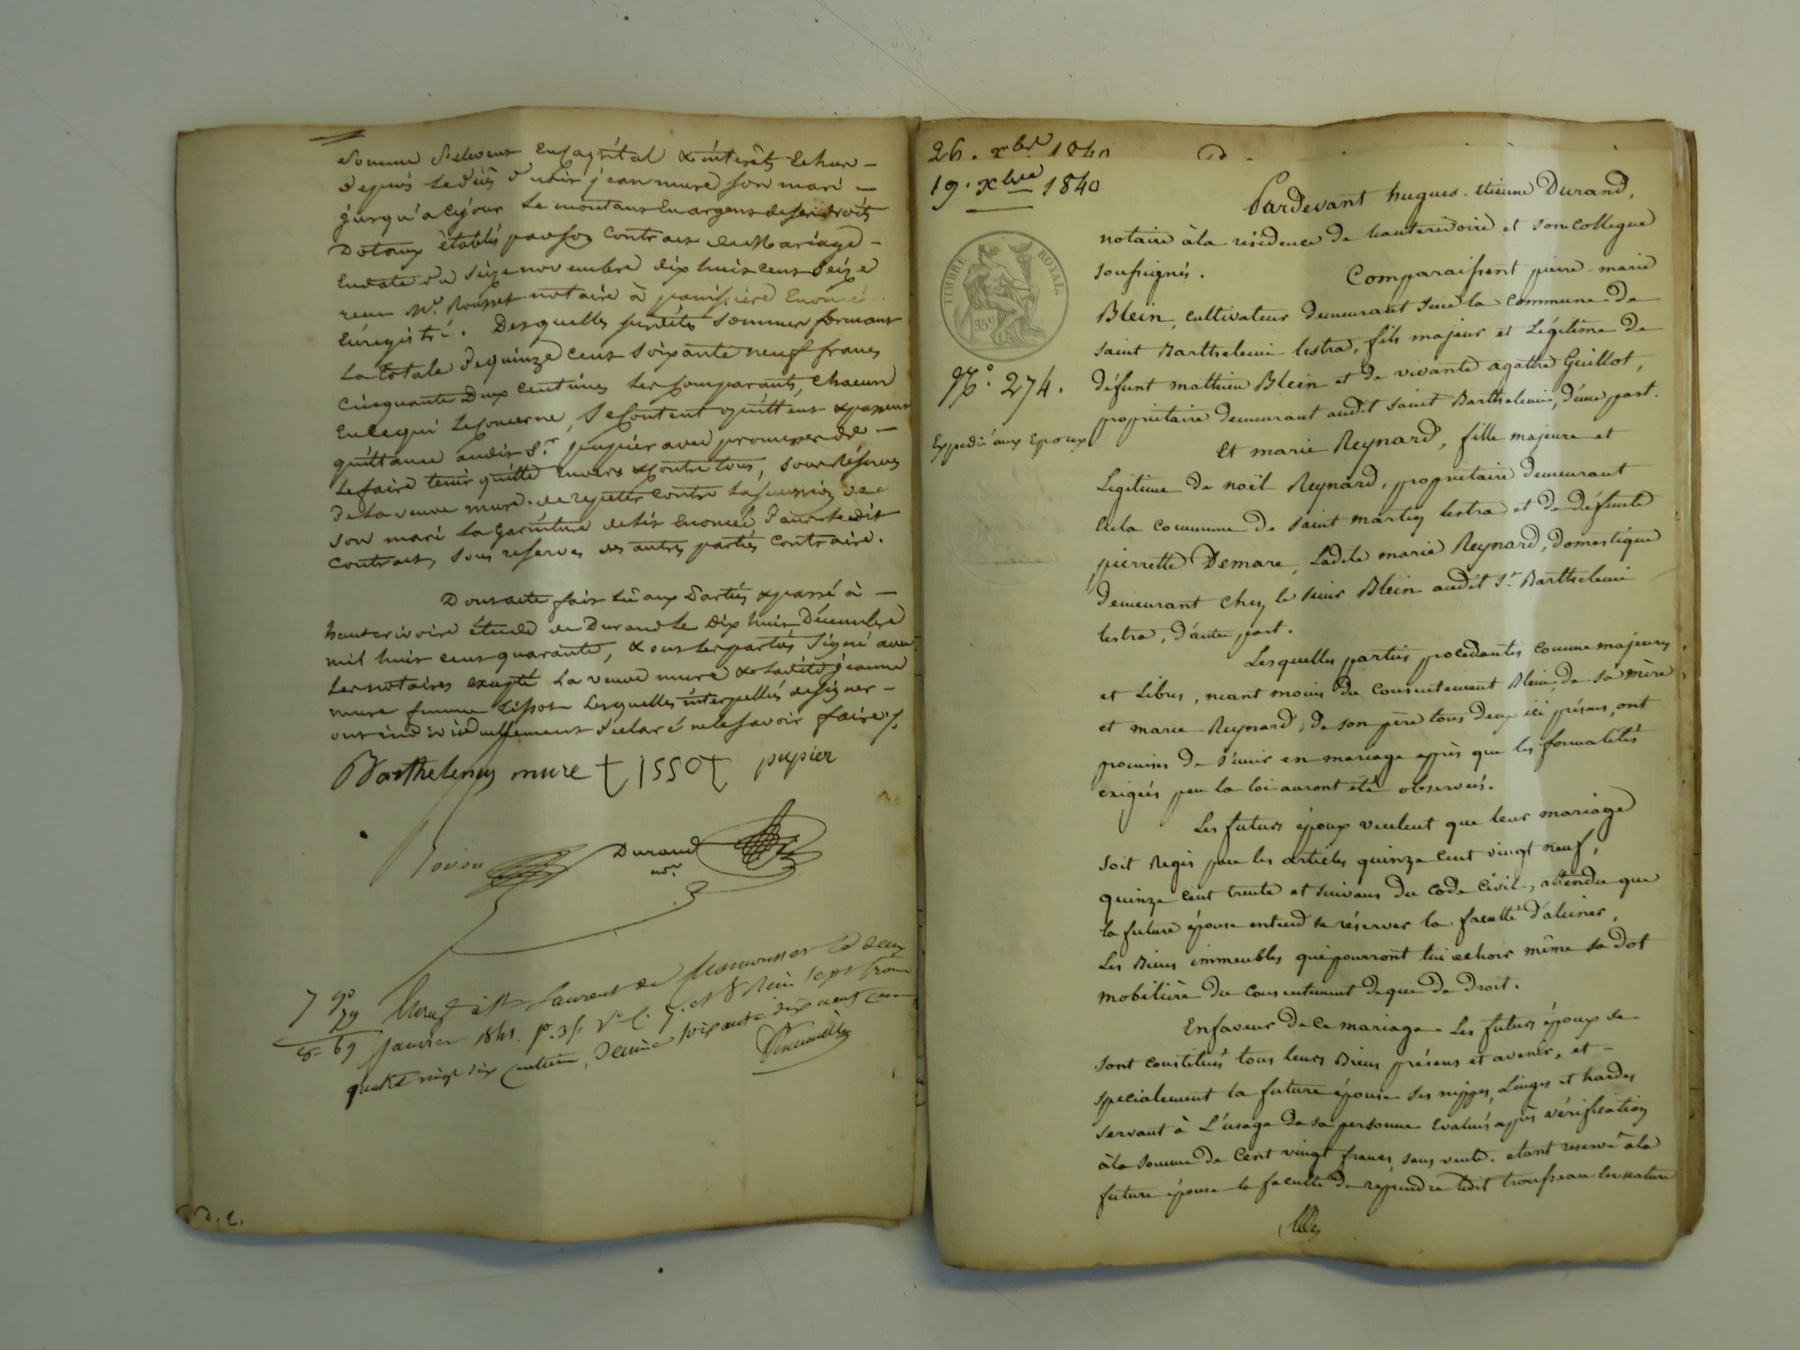 Somme Relevens en Capital & intérêts Echus –
Depuis le décès dudit jean mure son mari –
jusqu'a ce jour le montant en argent de ses droits
Dotaux établis par son contrat de Mariage –
en date du seize novembre dix huit cent seize
reçu Me. Rousset notaire à panissière
Enrégistré. Desquelles susdites sommes formant
la totale de quinze cent soixante neuf francs
cinquante deux centimes les comparants, chacun
en ce qui le concerne, se content quittent & passent
quittance audit Sr. pupier avec promesse de –
le faire tenir quitte envers & contre tous, sous réserves
De la veuve mure de repeter contre la succession de
son mari la garniture de lit énoncée Dans le dit
contrat, sous reserves des autres parties contraire.
Dont acte fait lû aux Parties & passé à –
hauterivoire étude de Durand le Dix huit Décembre
mil huit cent quarante, & ont les parties signé avec
les notaires excepté la veuve mure & ladite jeanne
mure femme tissot lesquelles interpellées de signer –
ont individuellement déclaré ne le savoir faire /.
Barthelemy mure tissot pupier
Durand
nore.
7 90
79
8 69
Enregt à St Laurent de Chamousset le deux
janvier 1841. fo. 31. Vo. C. 7. et 8 Reçu sept francs
quatre vingt dix centimes, Décime soixante dix neuf cent
D. 2.
26. xbre 1840
19. Xbre 1840
TIMBRE ROYAL.
35c
No. 274.
Expédié aux Epoux
Pardevant hugues-étienne Durand,
notaire à la résidence de hauterivoire et son Collegue
soussignés. Comparaissent pierre-marie
Blein, cultivateur demeurant sur la Commune de
Saint Barthelemi lestra, fils majeur et Légitime de
défunt mathieu Blein et de vivante agathe Guillot,
propriétaire demeurant audit Saint Barthelemi, d'une part.
Et marie Reynard, fille majeure et
Légitime de noël Reynard, propriétaire demeurant
en la Commune de Saint martin lestra et de défunte
pierrette Demare, Ladite marie Reynard, domestique
demeurant chez le sieur Blein audit St. Barthelemi
lestra, d'autre part.
Lesquelles parties procedantes comme majeures
et Libres, néant moins du Consentement Blein, de sa mère
et marie Reynard, de son père tous deux ici présens, ont
promises de s'unir en mariage après que les formalités
exigées par la loi auront été observées.
Les futurs époux veulent que leur mariage
soit Régis par les articles quinze cent vingt neuf,
quinze cent trente et suivans du code civil, attendu que
la future épouse entend se réserver la faculté d'aliener,
Les Biens immeubles qui pourront lui echoir même sa Dot
mobilière du Consentement de que de Droit.
En faveur de ce mariage Les futurs époux se
sont constitués tous leurs Biens présens et avenir, et –
spécialement la future épouse ses nippes, Linges et hardes
servant à L'usage de sa personne Evalués après vérification
à la somme de Cent vingt francs, sans vente. etant réservé à la
future épouse la faculté de reprendre ledit trousseau en nature